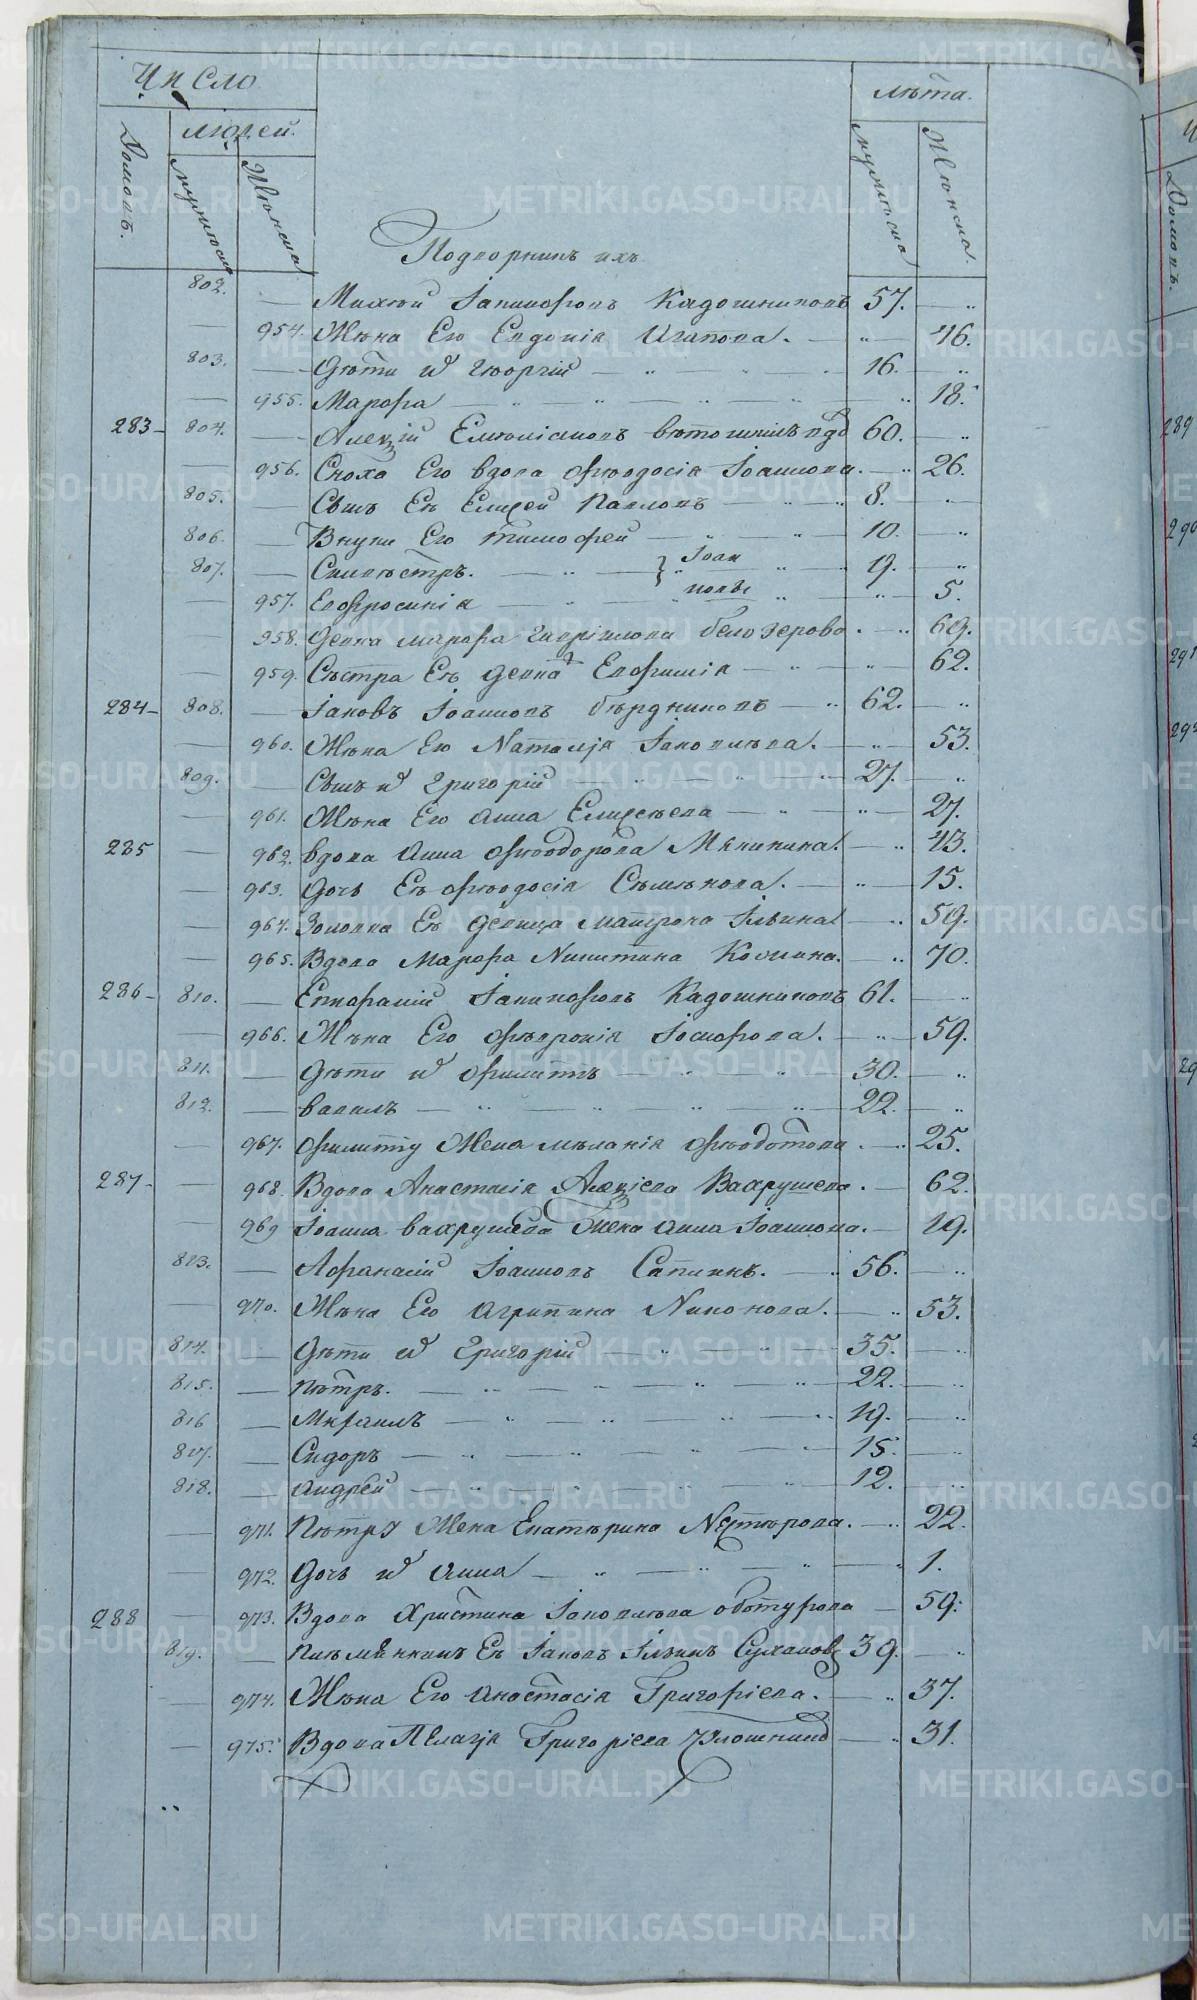 Число
лѣта.
людей.
Домовъ.
мужеска
Женска
мужеска
Женска.
Подворникъ ихъ
802. — Михей Іаникіоровъ Кадошниковъ 57. — „
— 954. Жена Его Евдокія Агапова. — „ — 46.
803. — Дѣти и҆ Георгій — „ — 16. — „
— 955. Марфа — „ — „ — „ — „ 18.
283 — 804. — Алексій Емеліановъ 60. — „
— 956. Сноха Его вдова Феодосія Іоаннова. — „ 26.
805. — Сынъ Ея Елисей Павловъ — „ — 8. — „
806. — Внуки Его Тимофей — „ „ — 10. — „
807. — Силвестръ. — „ — } Іоан „ — 19. — „
— 957. Евфросинія — „ — новы „ — „ — 5.
958. Девка Марфа Гавріилова белозерова. — „ 69.
— 959. Сестра Ея девка Евфимія — „ — „ — 62.
284 — 808. — Іаковъ Іоанновъ бердниковъ — „ 62. — „
— 960. Жена Его Наталія Іаковлева. — „ — 53.
809. — Сынъ и҆ Григорій — „ — „ — 27. — „
— 961. Жена Его Анна Елисеева — „ — „ — 27.
285 — 962. вдова Анна Феодорова Мякинина. — „ 43.
— 963. Дочь Ея Феодосія Семенова. — „ — 15.
— 964. Золовка Ея Девица Матрона Ильина — „ 59.
— 965. Вдова Марфа Никитина Козмина. — „ 70.
286 — 810. — Евграфій Кадошниковъ 61. — „
— 966. Жена Его Февронія Іосифова. — „ — 59.
811. — Дѣти и҆ Филиппъ — „ — „ — 30. — „
812. — Вавилъ — „ — „ — „ — 22. — „
— 967. Филиппу Жена Меланія Феодотова. — „ 25.
287 — — 968. Вдова Анастасія Алексіева Вахрушева. — 62.
— 969 Іоанна Вахрушева Жена Анна Іоаннова. — 29.
813. — Афанасій Іоанновъ Сапинъ. — „ 56. — „
— 970. Жена Его Агрипина Никонова. — „ 53.
814. — Дѣти и҆ Григорій — „ — „ — 35. — „
815. — Петръ. — „ — „ — „ — 22. — „
816 — Михаилъ — „ — „ — „ — 19. — „
817. — Сидоръ — „ — „ — „ — 15. — „
818. — Андрей — „ — „ — „ — 12. — „
— 971. Петру Жена Екатерина Нестерова. — „ 22.
— 972. Дочь и҆ Анна — „ — „ — „ 1.
288 — 973. Вдова Христина Іаковлева обатурова — 59.
819. — племянникъ Ея Іаковъ Ильинъ Сухановъ 39. — „
— 974. Жена Его Анастасія Григоріева. — „ 37.
— 975. Вдова Пелагія Григоріева — „ 31.